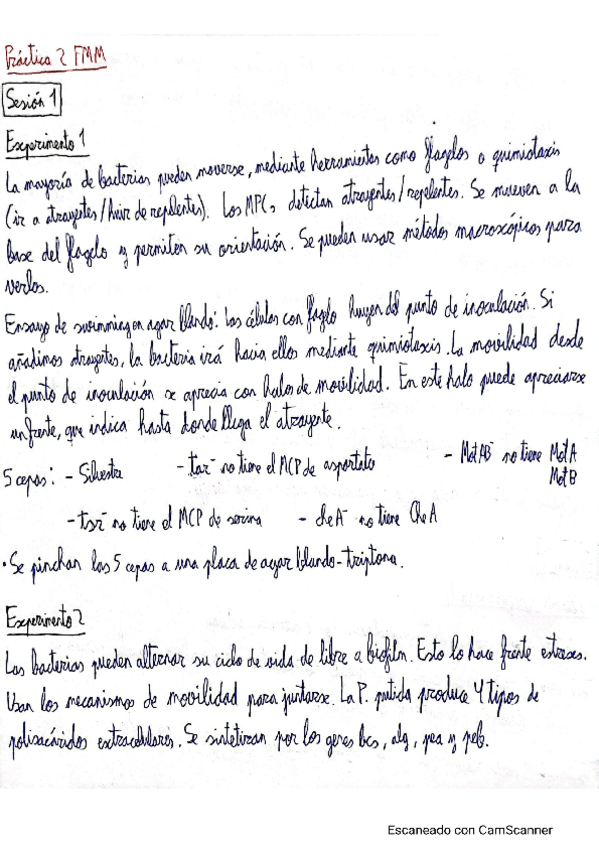 Práctica 2 FMM
Sesión 1
Experimento 1
La mayoría de bacterias pueden moverse, mediante herramientas como flagelos o quimiotaxis
(ir a atrayentes/huir de repelentes). Los MPCs detectan atrayentes/repelentes. Se mueven a la
base del flagelo y permiten su orientación. Se pueden usar métodos macroscópicos para
verlos.
Ensayo de swimming en agar blando: las células con flagelo huyen del punto de inoculación. Si
añadimos atrayentes, la bacteria irá hacia ellos mediante quimiotaxis. La movilidad desde
el punto de inoculación se aprecia con halos de movilidad. En este halo puede apreciarse
un frente, que indica hasta donde llega el atrayente.
5 cepas: - Silvestre - tar⁻ no tiene el MCP de aspartato - MotAB⁻ no tiene MotA
MotB
- tsr⁻ no tiene el MCP de serina - cheA⁻ no tiene CheA
· Se pinchan las 5 cepas a una placa de agar blando-triptona.
Experimento 2
Las bacterias pueden alternar su ciclo de vida de libre a biofilm. Esto lo hace frente estreses.
Usan los mecanismos de movilidad para juntarse. La P. putida produce 4 tipos de
polisacáridos extracelulares. Se sintetizan por los genes bcs, alg, pea y peb.
Escaneado con CamScanner